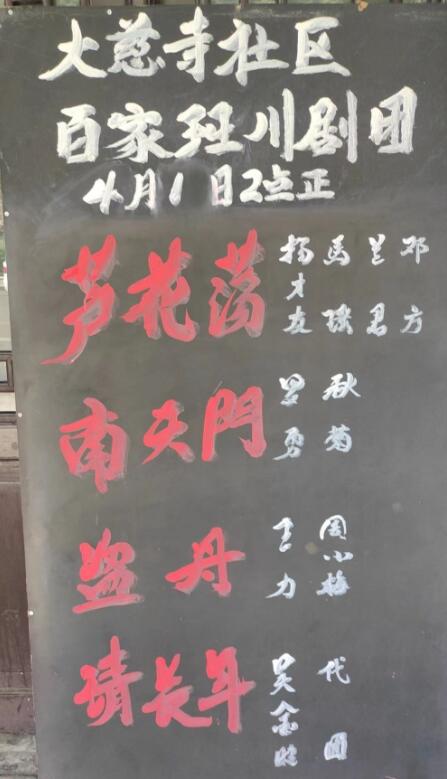 大慈寺社区
百家班川剧团
4月1日2点正
芦花荡 杨才友 马 兰君 邓方
南天門 罗勇 秋菊
盗丹 王力 周小梅
请长年 吴金 代圆